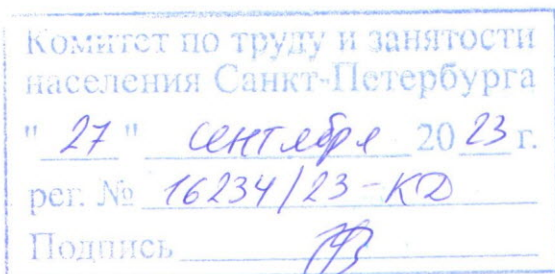 Комитет по труду и занятости
населения Санкт-Петербурга
" 27 " сентября 2023 г.
рег. № 16234/23-КД
Подпись